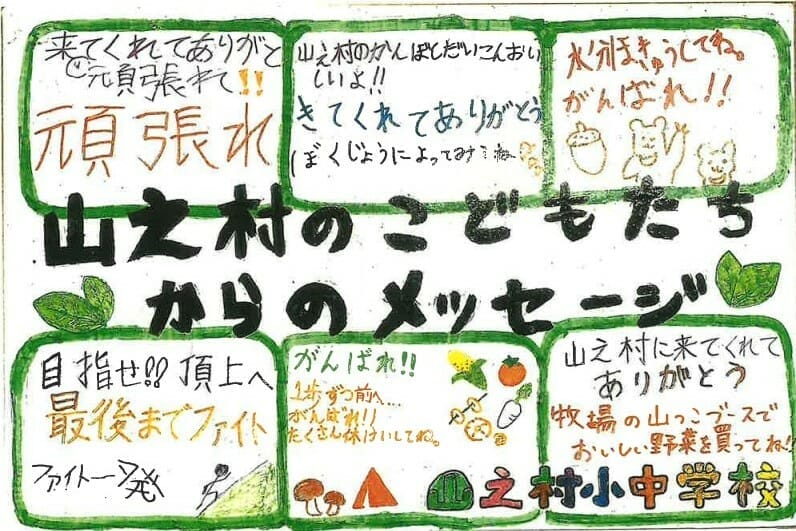 来てくれてありがと
う元頑張れて!!
頑張れ
山之村のかんぼしだいこんおい
しいよ!!
きてくれてありがとう
ぼくじょうによってみてね
水分ほきゅうしてね。
がんばれ!!
山之村のこどもたち
からのメッセージ
目指せ!!頂上へ
最後までファイト
ファイト一発
がんばれ!!
1歩ずつ前へ...
がんばれ!!
たくさん休けいしてね。
山之村に来てくれて
ありがとう
牧場の山っこブースで
おいしい野菜を買ってね!
山之村小中学校